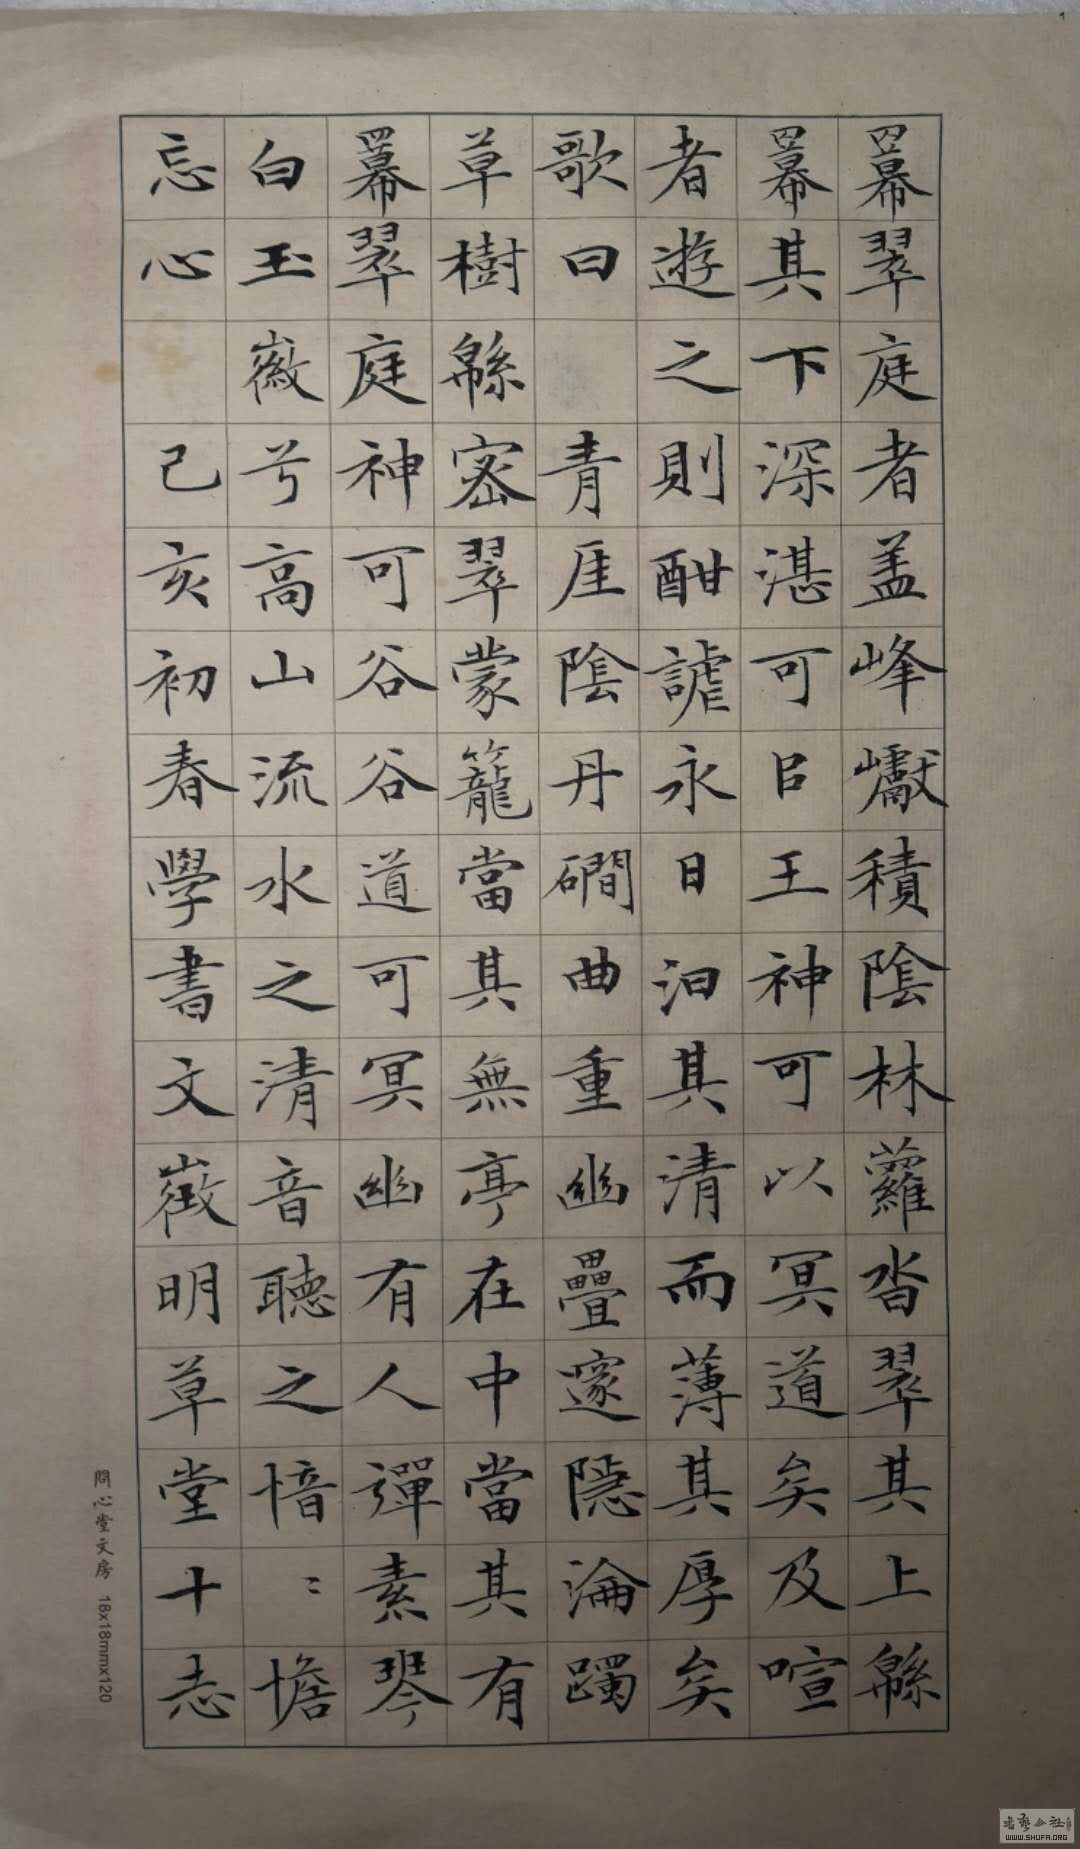 羃翠庭者盖峰巘積陰林蘿沓翠其上緜
羃其下深湛可㠯王神可以冥道矣及喧
者遊之則酣謔永日汩其清而薄其厚矣
歌曰 青厓陰丹磵曲重幽疊邃隱淪躅
草樹緜密翠蒙籠當其無亭在中當其有
羃翠庭神可谷谷道可冥幽有人彈素琴
白玉徽兮高山流水之清音聽之愔〻憺
忘心 己亥初春學書文徵明草堂十志
問心堂文房 18x18mmx120
書藝公社
WWW.SHUFA.ORG